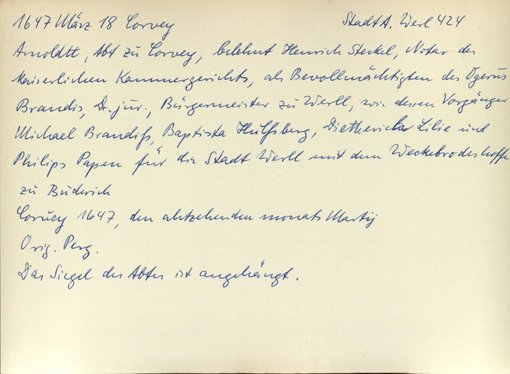 1647 März 18 Corvey StadtA. Werl 424
Arnoldtt, Abt zu Corvey, belehnt Henrich Steckel, Notar des
kaiserlichen Kammergerichts, als Bevollmächtigten des Ogerus
Brandis, Dr. jur., Bürgermeister zu Werll, wie dessen Vorgänger
Michael Brandiß, Baptista Hulßberg, Dietherich Lilie und
Philips Papen für die Stadt Werll mit dem Weckebrodeshoffe
zu Büderich
Corvey 1647, den ahtzehenden monats Martij
Orig. Perg.
Das Siegel des Abtes ist angehängt.